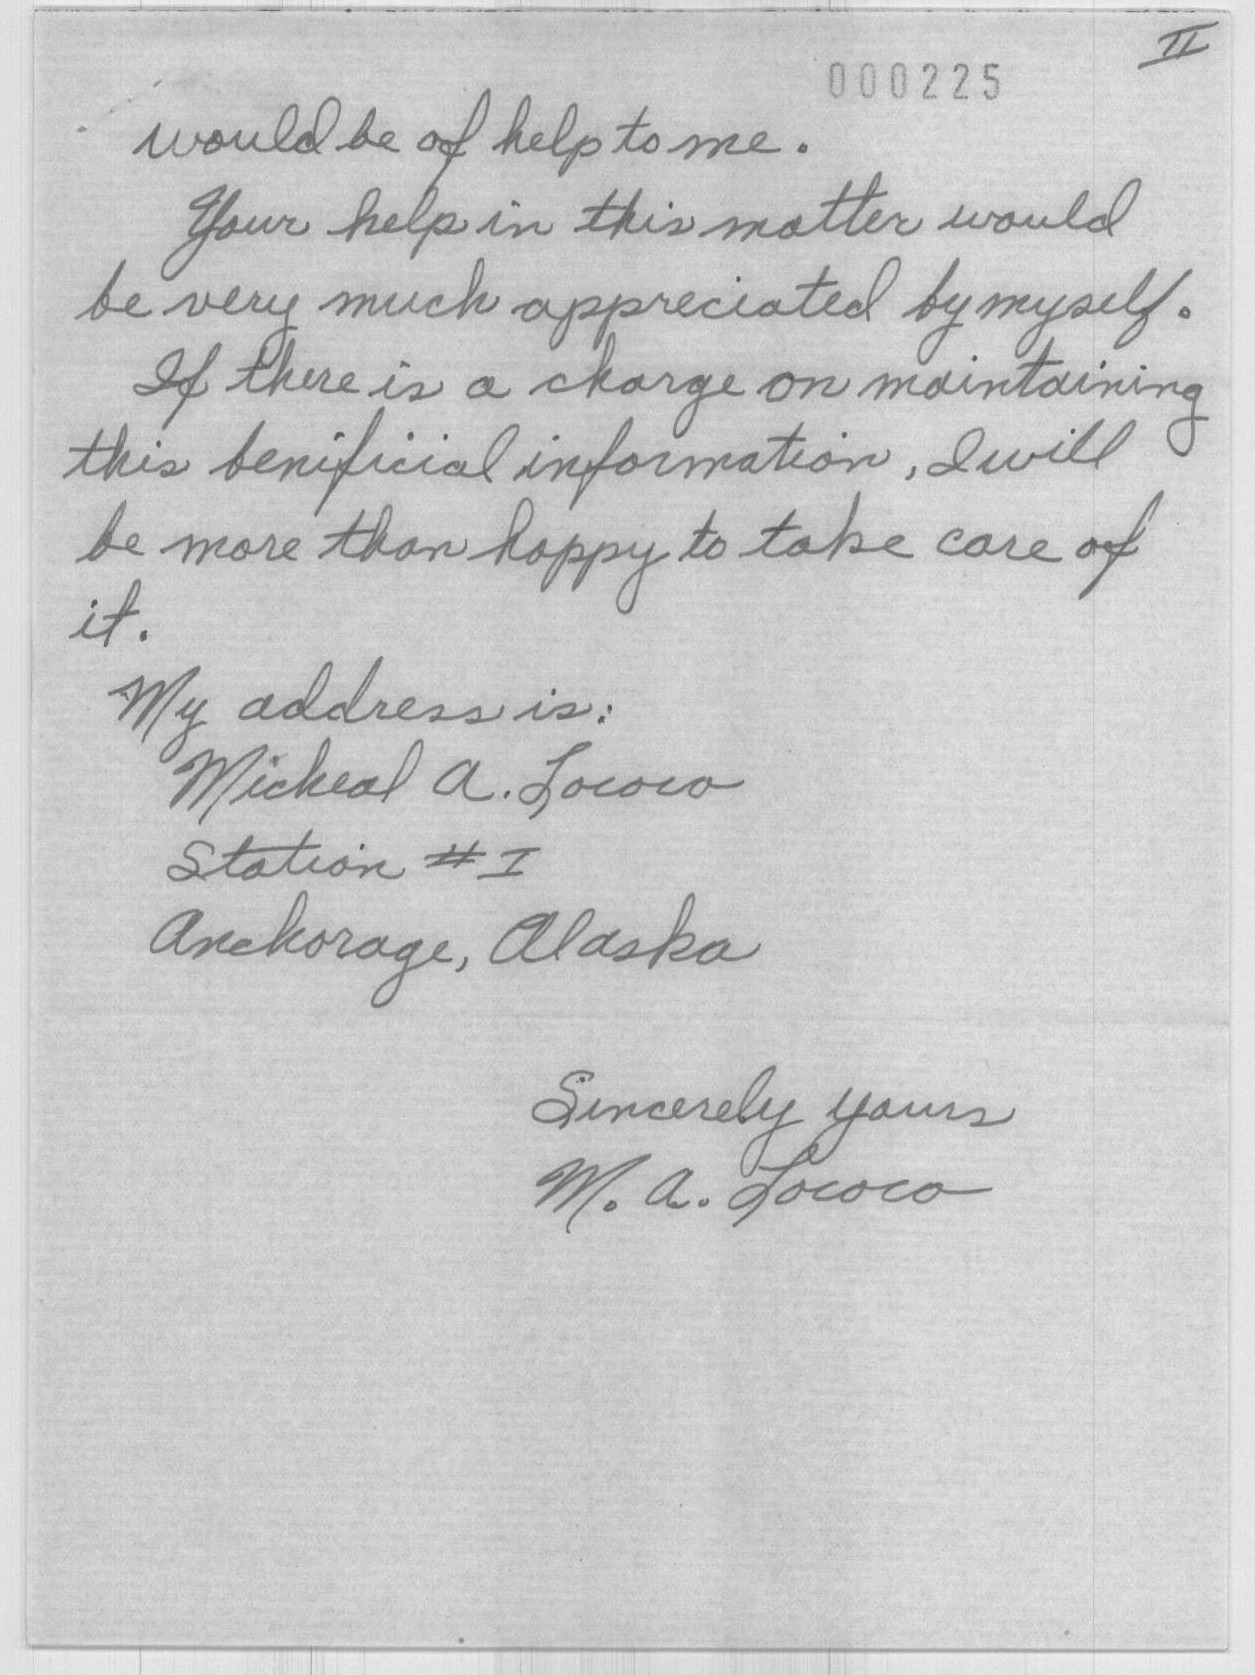 II
000225
would be of help to me.
Your help in this matter would
be very much appreciated by myself.
If there is a charge on maintaining
this benificial information, I will
be more than happy to take care of
it.
My address is:
Micheal A. Lococo
Station # I
Anchorage, Alaska
Sincerely yours
M. A. Lococo